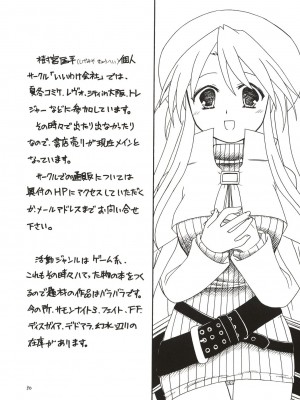 樹宮匡平(いつみやきょうへい)個人
サークル「いいわけ会社」では、
夏冬コミケ、レヴォ、シティin大阪、トレ
ジャーなどに参加しています。
その時々で出たり出なかったり
なので、書店売りが現在メインと
なっています。
サークルでの通販については
奥付のHPにアクセスしていただく
か、メールアドレスまでお問い合せ
下さい。
活動ジャンルはゲーム系、
これもその時々ハマった物の本をつく
るので題材の作品はバラバラです。
今の所、サモンナイト3、フェイト、FF、
ディスガイア、デドアラ、幻水辺りの
在庫があります。